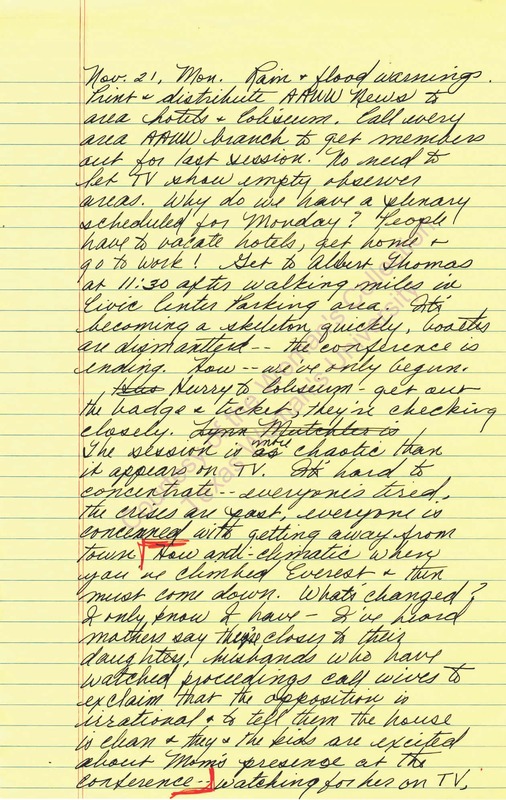 Nov. 21, Mon. Rain & flood warnings.
Print & distribute AAUW News to
area hotels & coliseum. Call every
area AAUW branch to get members
out for last session. No need to
let TV show empty observer
areas. Why do we have a plenary
scheduled for Monday? People
have to vacate hotels, get home &
go to work! Get to Albert Thomas
at 11:30 after walking miles in
Civic Center Parking area. It's
becoming a skeleton quickly, booths
are dismantled -- the conference is
ending. How -- we've only begun.
Hurry to Coliseum - get out
the badge & ticket, they're checking
closely. Lynn Mutchler is
The session is as more chaotic than
it appears on TV. It's hard to
concentrate -- everyone's tired,
the crises are past, everyone is
concerned with getting away from
town. How anti-climatic when
you've climbed Everest & then
must come down. What's changed?
I only know I have - I've heard
mothers say they're closer to their
daughter, husbands who have
watched proceedings call wives to
exclaim that the opposition is
irrational & to tell them the house
is clean & they & the kids are excited
about Mom's presence at the
conference -- watching for her on TV.
Courtesy of the Woman's Collection
Texas Woman's University